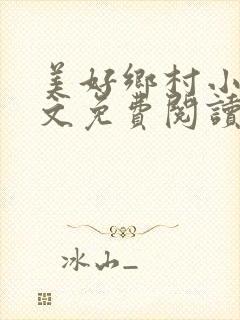 美好鄉村小
文免費閱讀
冰山_